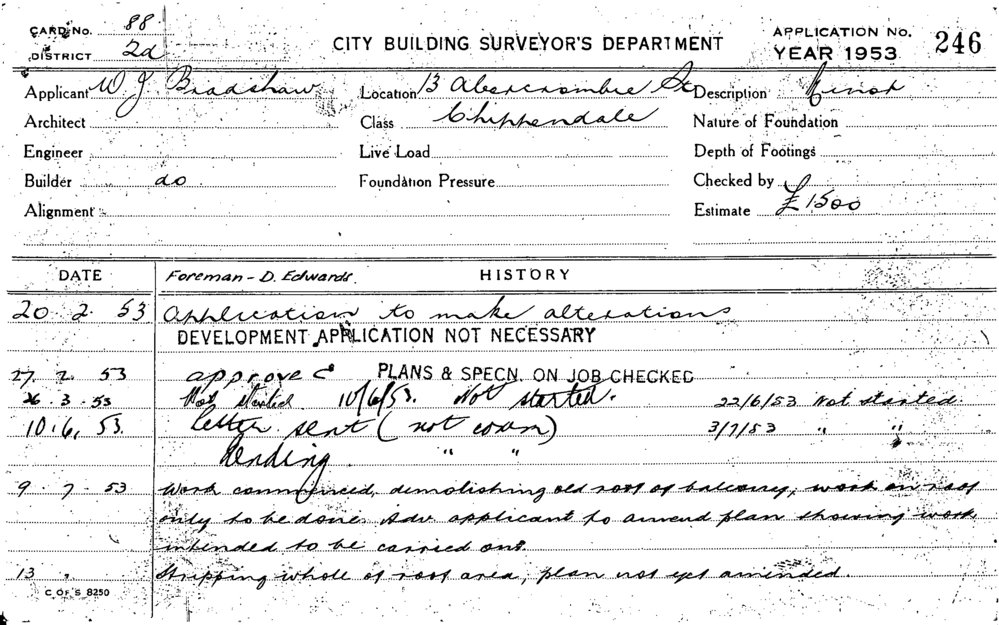 CARD No. 88
DISTRICT 2d
CITY BUILDING SURVEYOR'S DEPARTMENT
APPLICATION No. 246
YEAR 1953
Applicant W J Bradshaw Location 13 Abercrombie St Description Minor
Architect Class Chippendale Nature of Foundation
Engineer Live Load Depth of Footings
Builder do. Foundation Pressure Checked by
Alignment Estimate £1500
DATE Foreman - D. Edwards. HISTORY
20. 2. 53 Application to make alterations
DEVELOPMENT APPLICATION NOT NECESSARY
27. 2. 53 approved PLANS & SPECN. ON JOB CHECKED
26. 3. 53 Not started. 10/6/53. Not started. 22/6/53 Not started.
10. 6, 53. Letter sent (not commn) 3/7/53 " "
Pending. " "
9. 7. 53 Work commenced, demolishing old roof of balcony, work on roof
only to be done. Adv. applicant to amend plan showing work
intended to be carried out.
13 " Stripping whole of roof area, plan not yet amended.
C OF S 8250